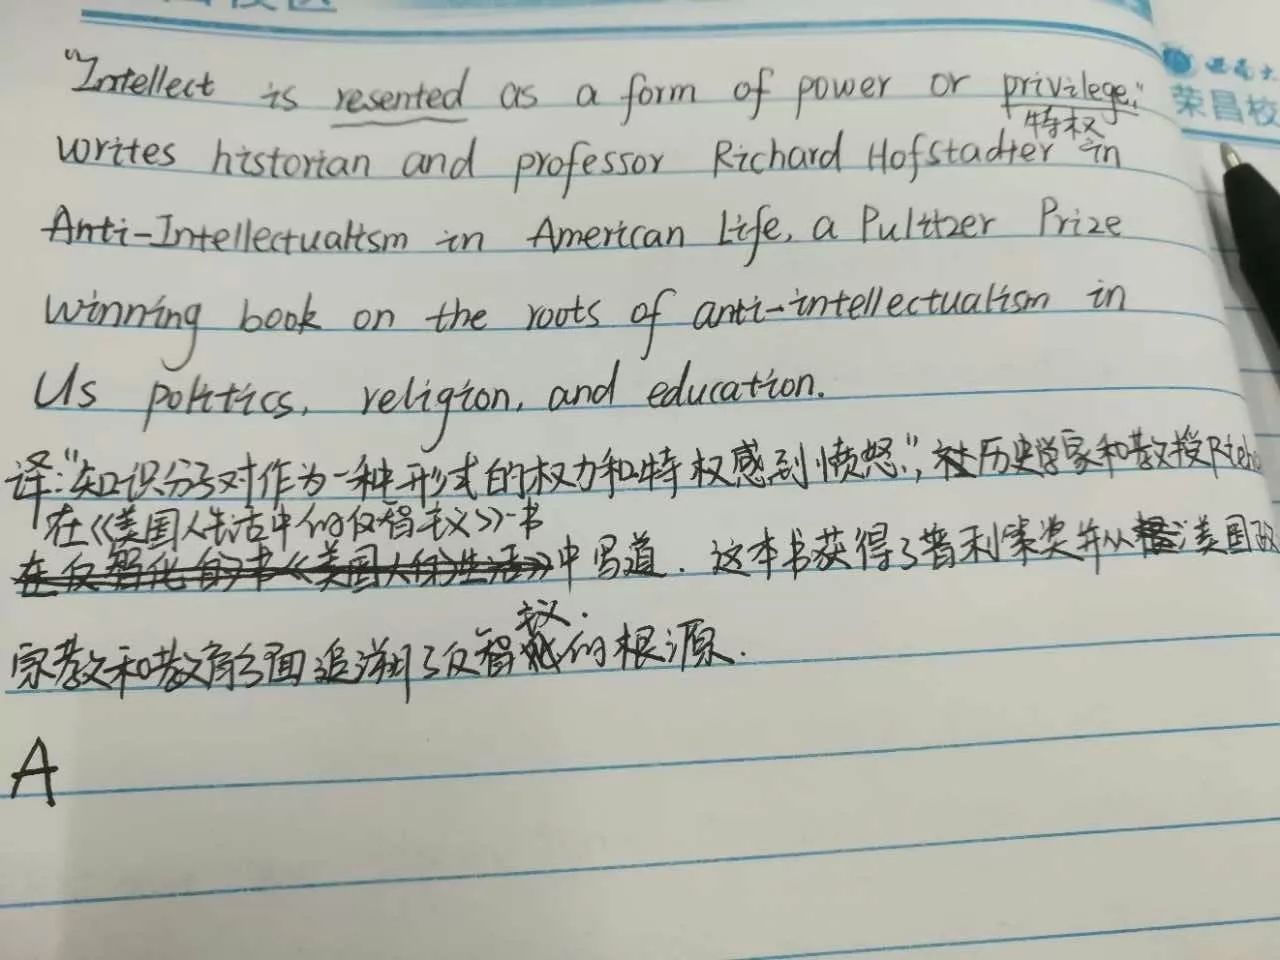 荣昌校
"Intellect is resented as a form of power or privilege,"
特权
writes historian and professor Richard Hofstadter in
Anti-Intellectualism in American Life, a Pulitzer Prize
winning book on the roots of anti-intellectualism in
Us politics, religion, and education.
译:"知识分子对作为一种形式的权力和特权感到愤怒",历史学家和教授
在《美国人生活中的反智主义》一书
在反智化的书《美国人的生活》中写道.这本书获得了普利策奖并从美国政
主义.
宗教和教育方面追溯了反智的根源.
A